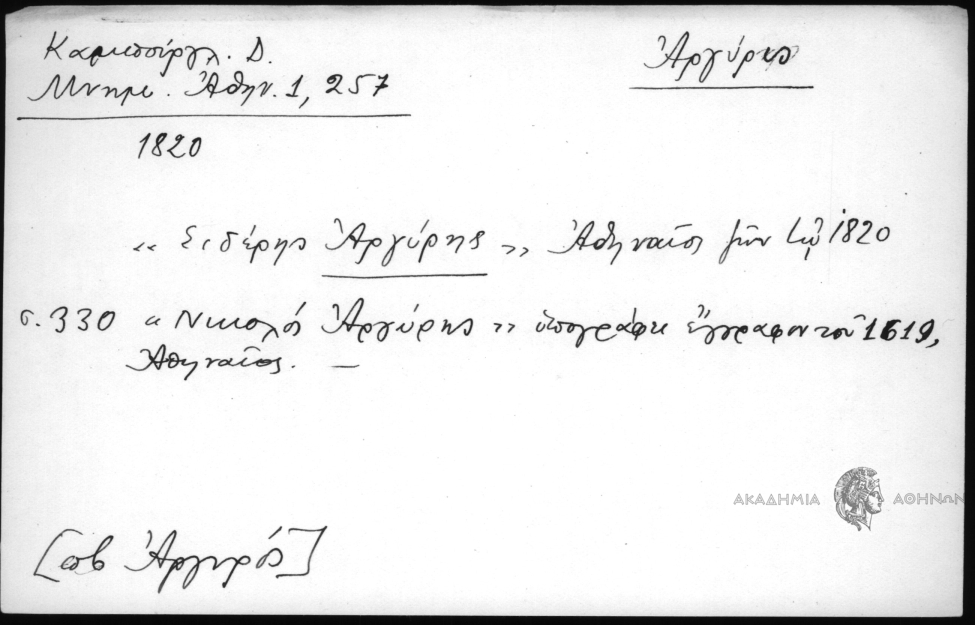 Καμπούρογλ. Δ.
Μνημ. Ἀθην. 1, 257
Ἀργύρης
1820
« Σιδέρης Ἀργύρης » Ἀθηναῖος ζῶν τῷ 1820
σ. 330 « Νικολός Ἀργύρης » ὑπογράφει ἔγγραφον τοῦ 1619,
Ἀθηναῖος. —
ΑΚΑΔΗΜΙΑ ΑΘΗΝΩΝ
[πβ Ἀργυρός]